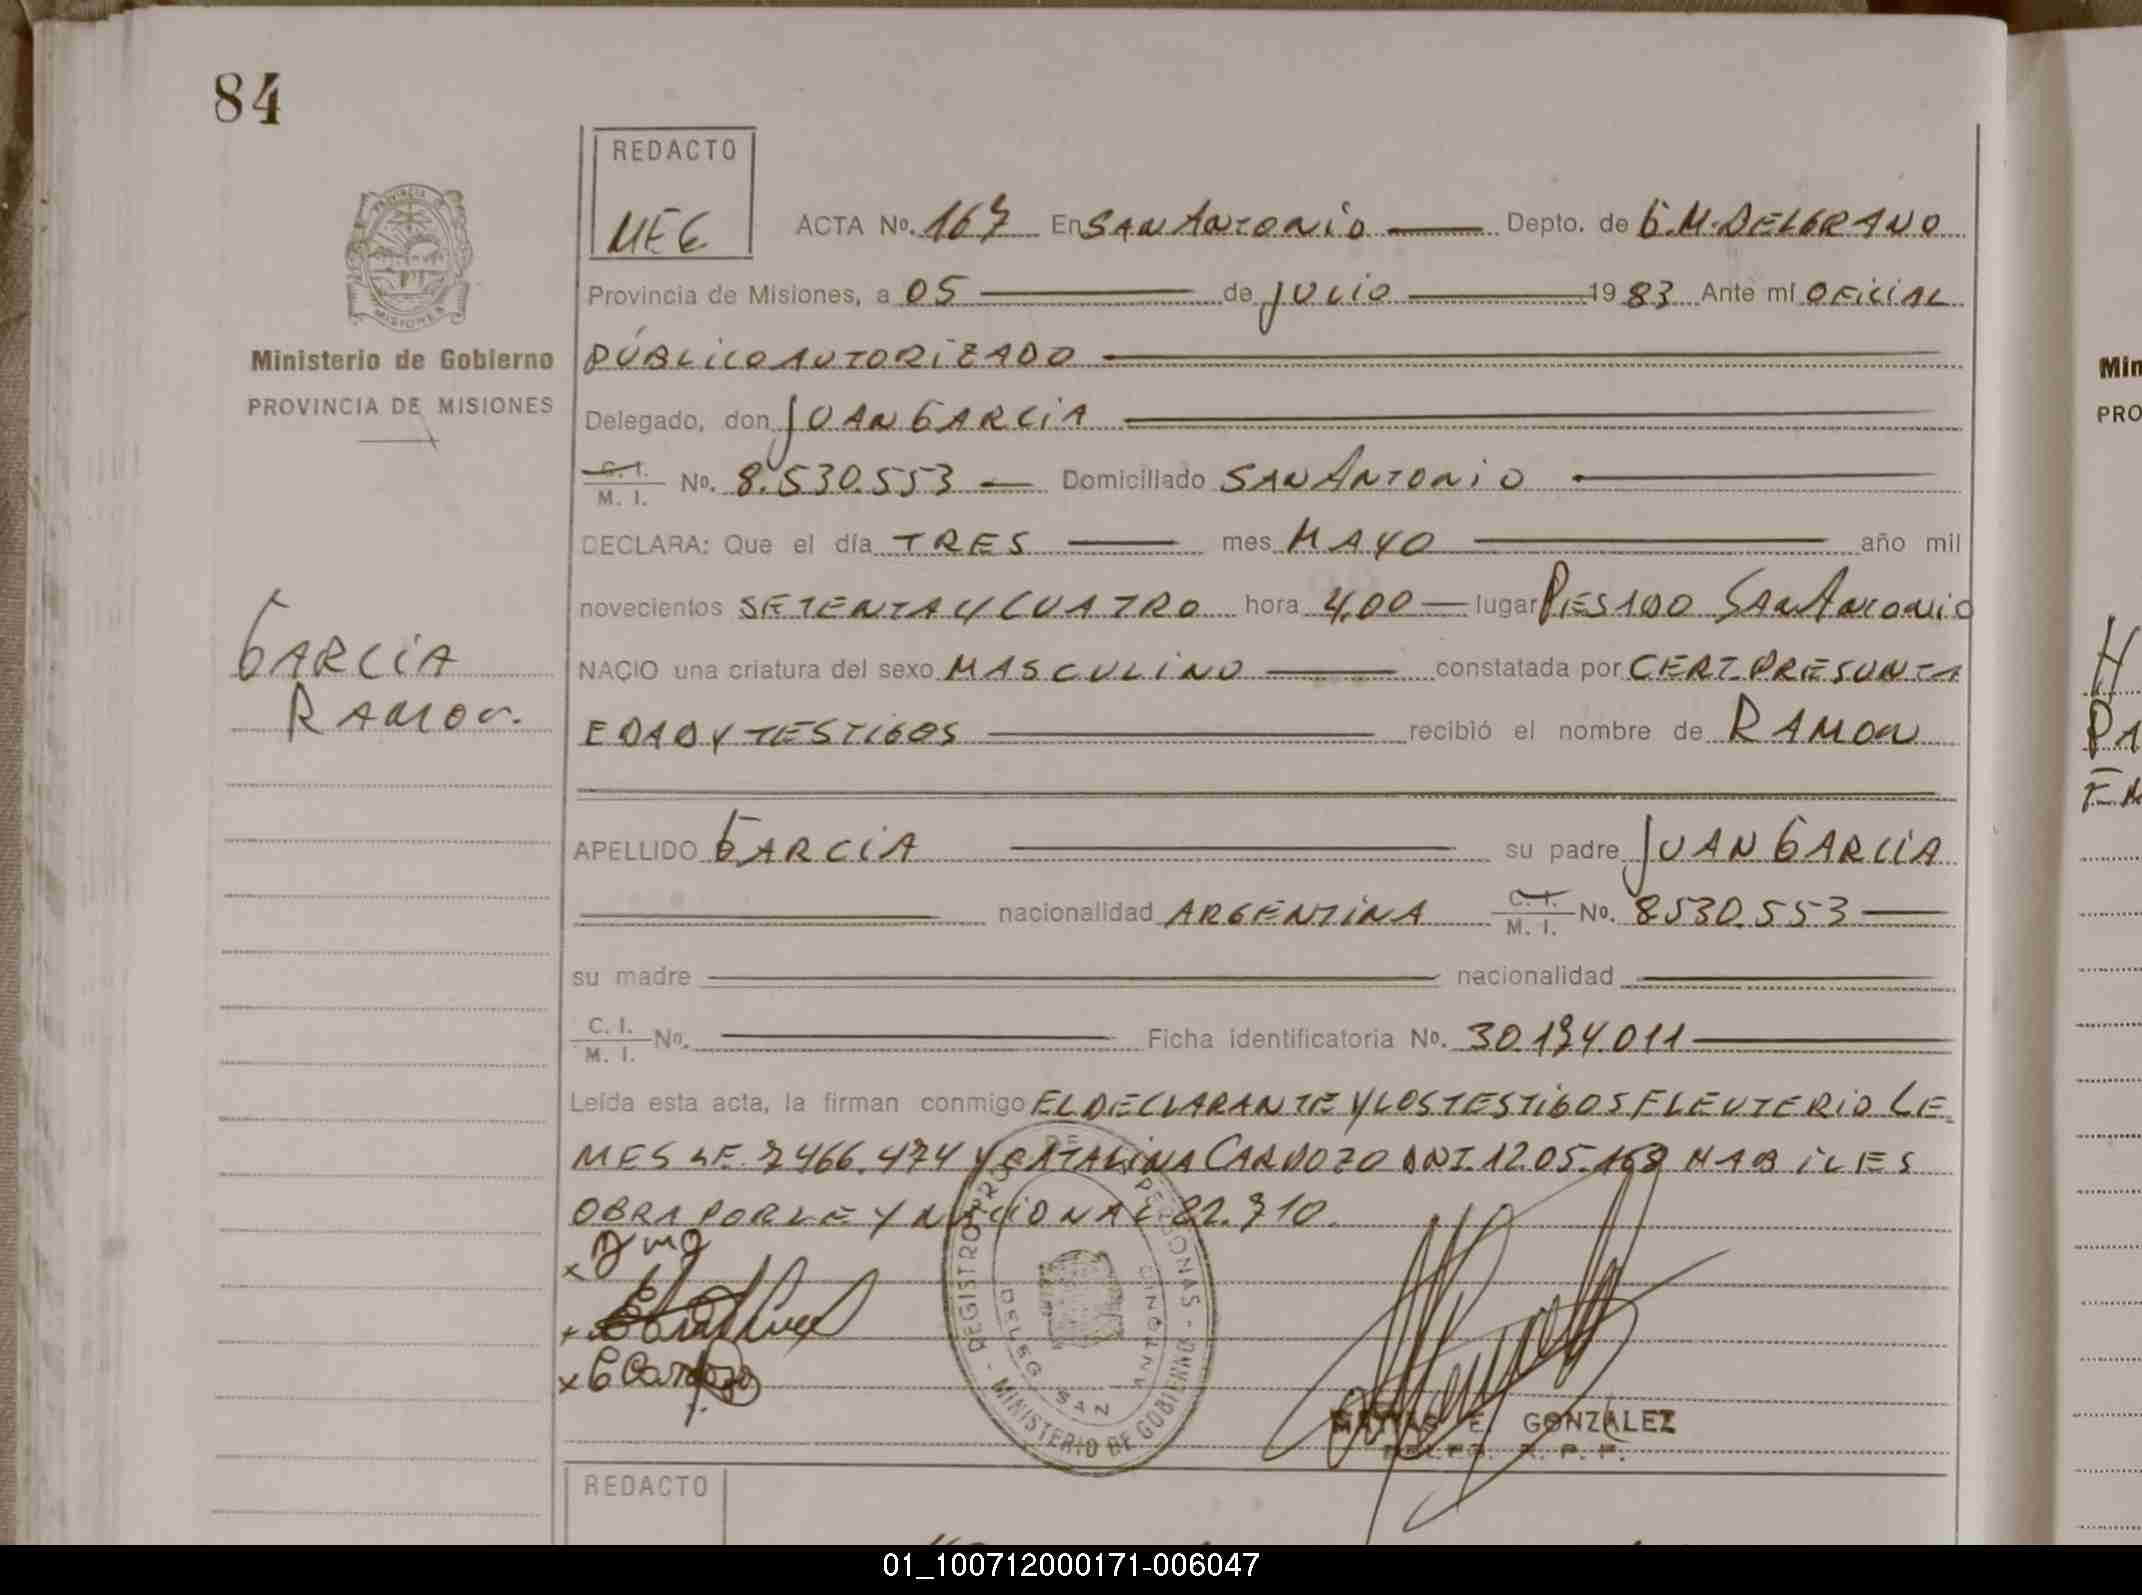 84
REDACTO
MEG
ACTA No. 167 En SAN ANTONIO Depto. de G.M. BELGRANO
Provincia de Misiones, a 05 de JULIO 1983 Ante mí OFICIAL
Ministerio de Gobierno
PÚBLICO AUTORIZADO
PROVINCIA DE MISIONES
Delegado, don JUAN GARCIA
C. I. M. I. No. 8.530.553 Domiciliado SAN ANTONIO
DECLARA: Que el día TRES mes MAYO año mil
novecientos SETENTA Y CUATRO hora 4,00 lugar SAN ANTONIO
GARCIA
RAMON
NACIO una criatura del sexo MASCULINO constatada por CERT. PRESUNTA
EDAD Y TESTIGOS recibió el nombre de RAMON
APELLIDO GARCIA su padre JUAN GARCIA
nacionalidad ARGENTINA C. I. M. I. No. 8530.553
su madre nacionalidad
C. I. M. I. No. Ficha identificatoria No.
Leída esta acta, la firman conmigo EL DECLARANTE Y LOS TESTIGOS ELEUTERIO LE
MES Y CATALINA CARDOZO HABILES
OBRA POR LEY NACIONAL
C Cardozo
REGISTRO PROV. DE PERSONAS - MINISTERIO DE GOBIERNO -
DELEG. SAN ANTONIO
MATIAS E. GONZALEZ
DELEG. R. P. P.
REDACTO
Min
PRO
01_100712000171-006047